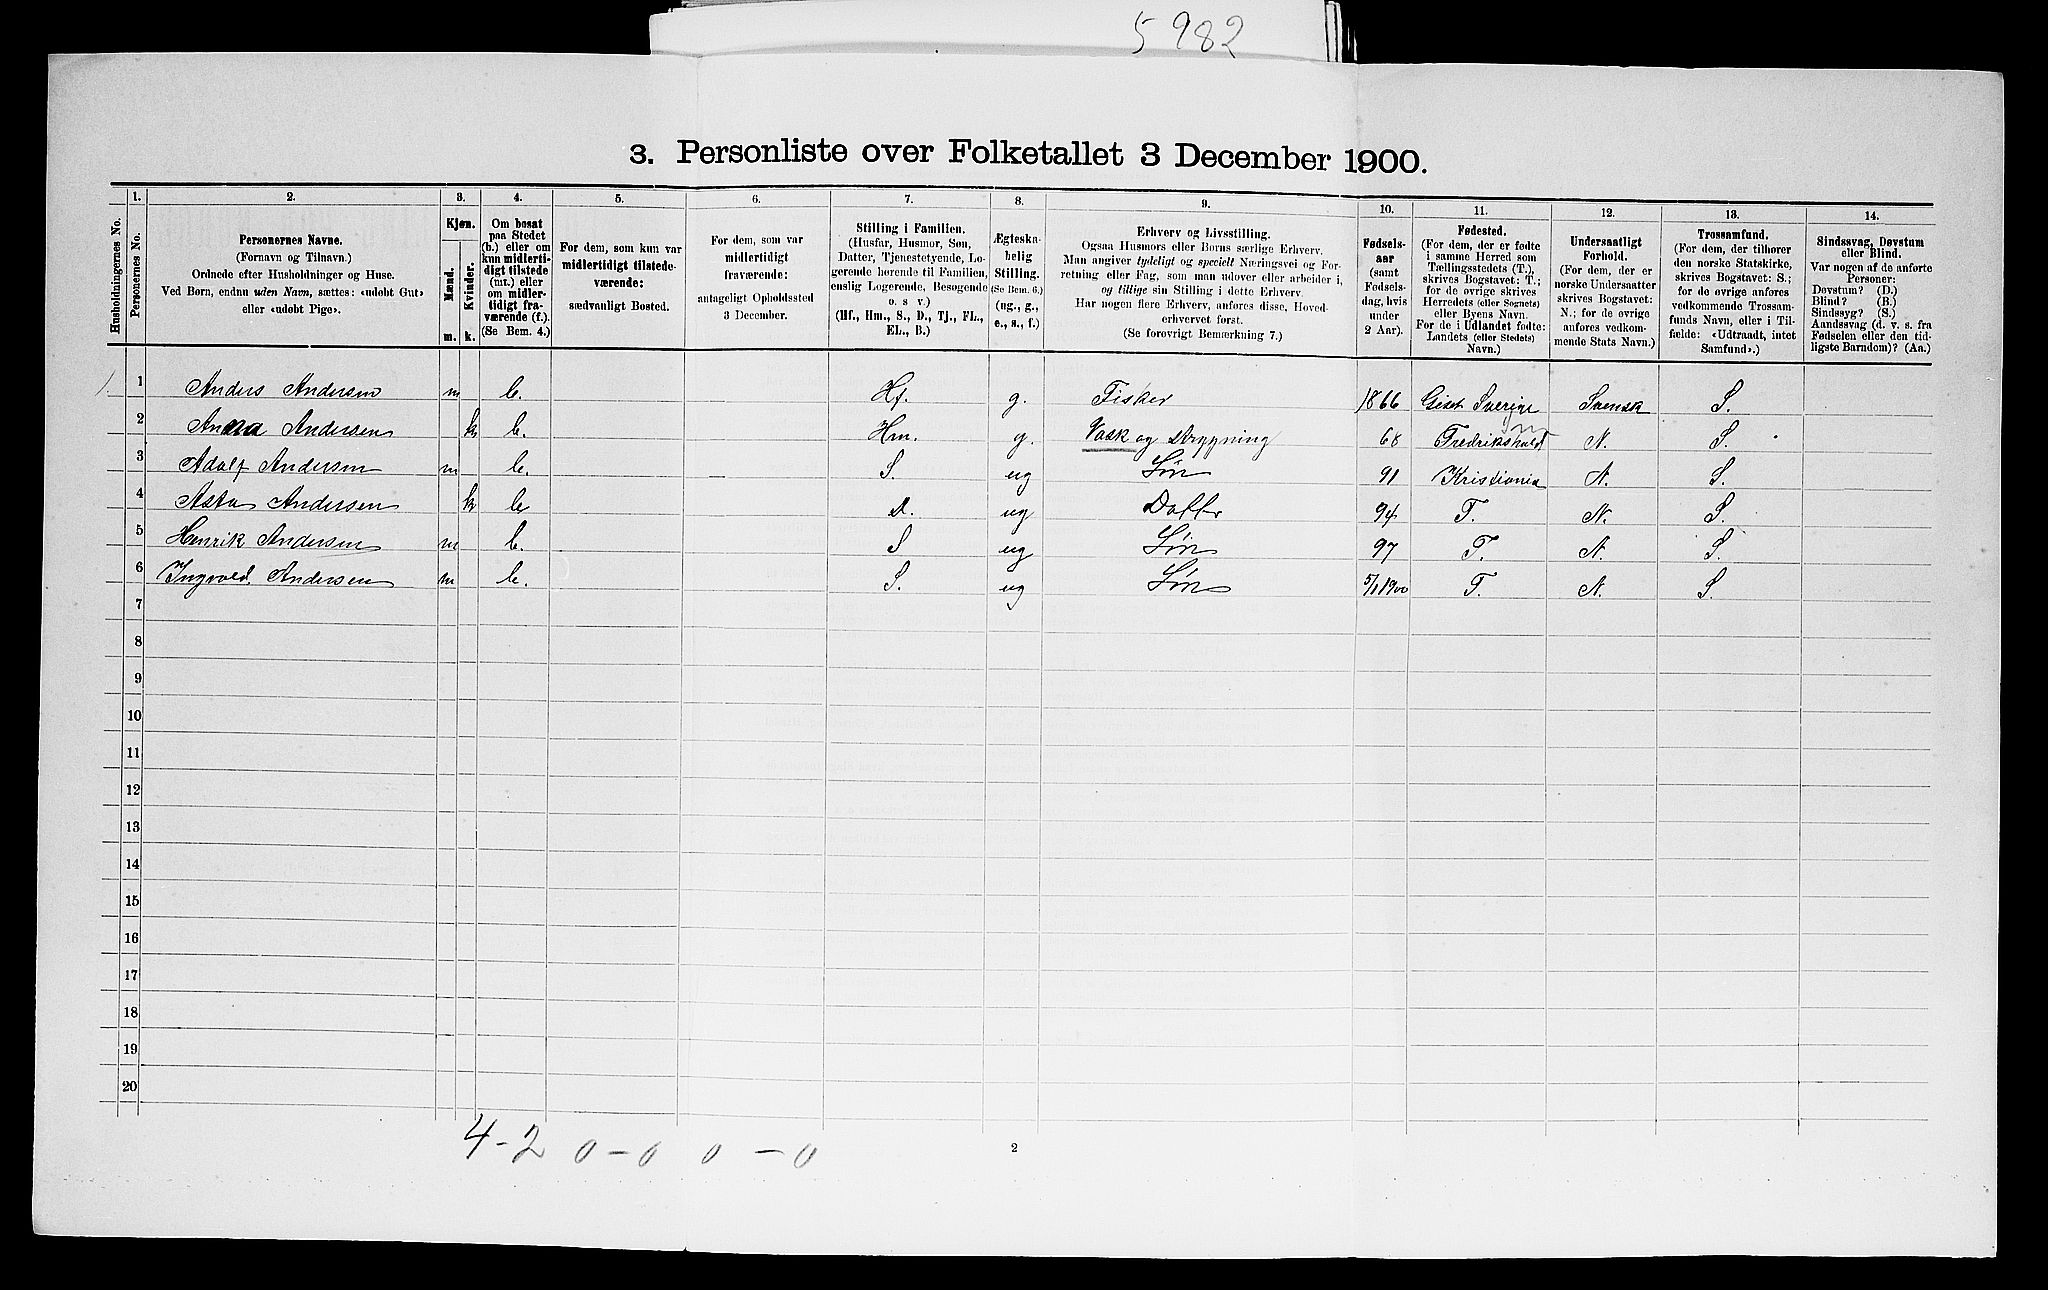 5982
3. Personliste over Folketallet 3 December 1900.
1. 2. 3. 4. 5. 6. 7. 8. 9. 10. 11. 12. 13. 14.
Husholdningernes No.
Personernes No.
Personernes Navne.
(Fornavn og Tilnavn.)
Ordnede efter Husholdninger og Huse.
Ved Børn, endnu uden Navn, sættes: «udøbt Gut»
eller «udøbt Pige».
Kjøn.
Mænd.
Kvinder.
m. k.
Om bosat
paa Stedet
(b.) eller om
kun midlerti-
digt tilstede
(mt.) eller
om midler-
tidigt fra-
værende (f.).
(Se Bem. 4.)
For dem, som kun var
midlertidigt tilstede-
værende:
sædvanligt Bosted.
For dem, som var
midlertidigt
fraværende:
antageligt Opholdssted
3 December.
Stilling i Familien.
(Husfar, Husmor, Søn,
Datter, Tjenestetyende, Lo-
gerende hørende til Familien,
enslig Logerende, Besøgende
o. s v.)
(Hf., Hm., S., D., Tj., FL.,
EL., B.)
Ægteska-
belig
Stilling.
(Se Bem. 6.)
(ug., g.,
e., s., f.)
Erhverv og Livsstilling.
Ogsaa Husmors eller Børns særlige Erhverv.
Man angiver tydeligt og specielt Næringsvei og For-
retning eller Fag, som man udøver eller arbeider i,
og tillige sin Stilling i dette Erhverv.
Har nogen flere Erhverv, anføres disse, Hoved-
erhvervet først.
(Se forøvrigt Bemærkning 7.)
Fødsels-
aar
(samt
Fødsels-
dag, hvis
under
2 Aar).
Fødested.
(For dem, der er fødte
i samme Herred som
Tællingsstedets (T.),
skrives Bogstavet: T.;
for de øvrige skrives
Herredets (eller Sognets)
eller Byens Navn.
For de i Udlandet fødte:
Landets (eller Stedets)
Navn.)
Undersaatligt
Forhold.
(For dem, der er
norske Undersaatter
skrives Bogstavet:
N.; for de øvrige
anføres vedkom-
mende Stats Navn.)
Trossamfund.
(For dem, der tilhører
den norske Statskirke,
skrives Bogstavet: S.;
for de øvrige anføres
vedkommende Trossam-
funds Navn, eller i Til-
fælde: «Udtraadt, intet
Samfund».)
Sindssvag, Døvstum
eller Blind.
Var nogen af de anførte
Personer:
Døvstum? (D.)
Blind? (B.)
Sindssyg? (S.)
Aandssvag (d. v. s. fra
Fødselen eller den tid-
ligste Barndom)? (Aa.)
1. 1 Anders Andersen m b. Hf. g. Fisker 1866 Sverige Svensk S.
2 Anna Andersen k b. Hm. g. Vask og strygning 68 Fredrikshald N. S.
3 Adolf Andersen m b. S. ug Søn 91 Kristiania N. S.
4 Asta Andersen k b d. ug Datter 94 T. N. S.
5 Henrik Andersen m b. S ug Søn 97 T. N. S.
6 Ingvold. Andersen m b. S. ug Søn 5/1 1900 T. N. S.
7
8
9
10
11
12
13
14
15
16
17
18
19
20
4-2 0-0 0-0
2